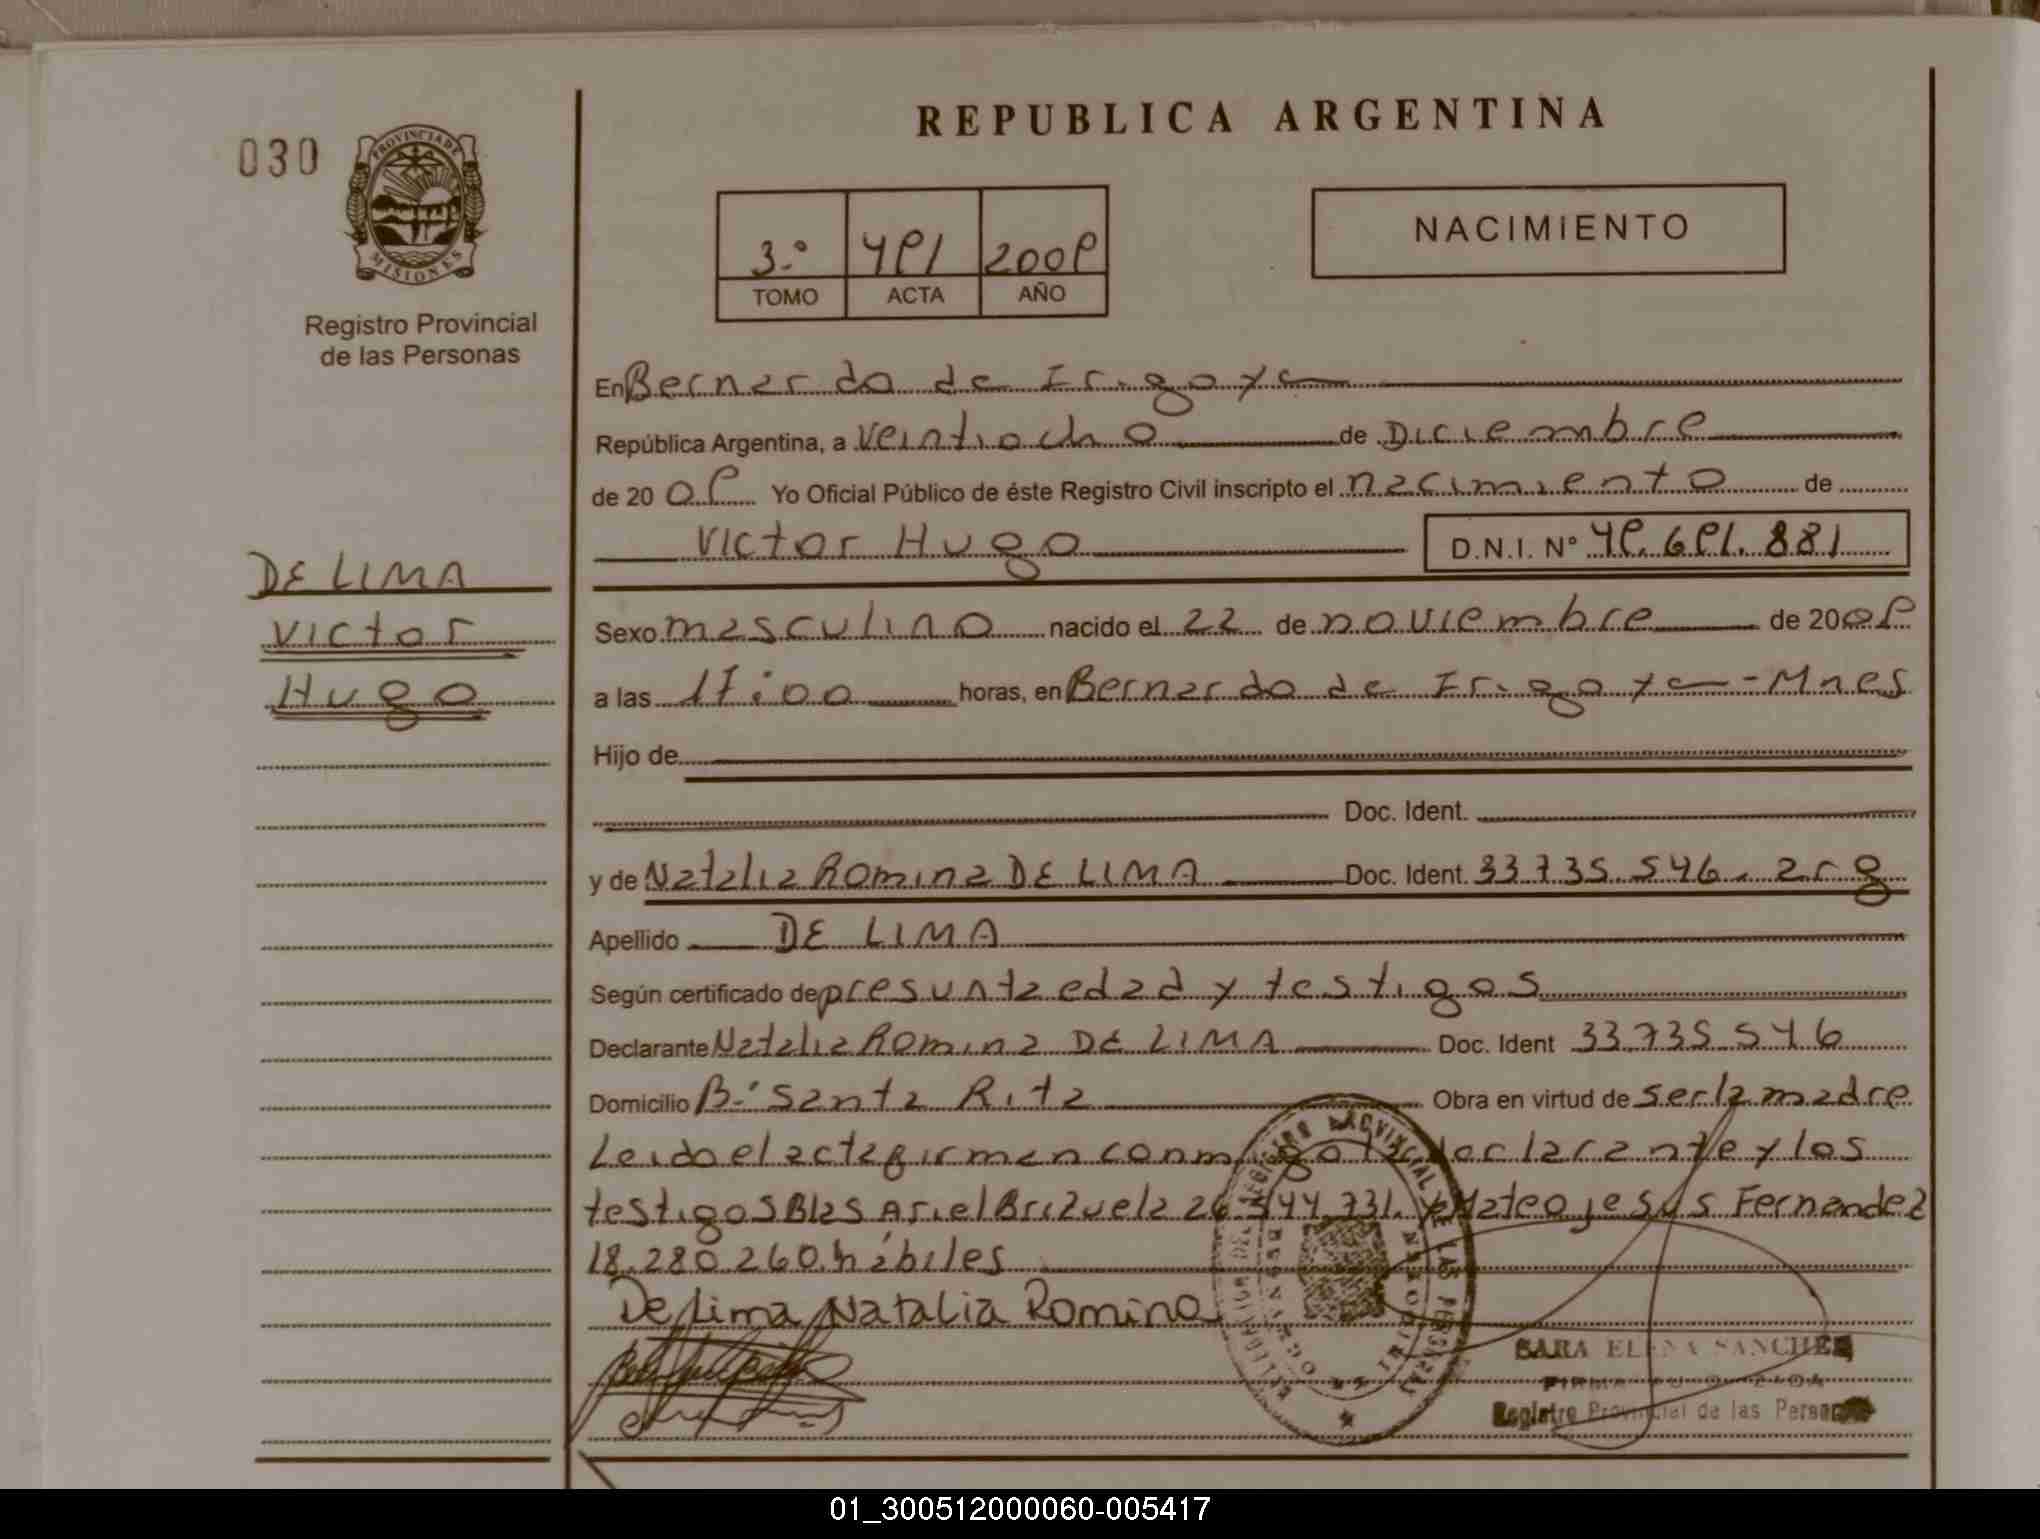 REPUBLICA ARGENTINA
030
PROVINCIA DE
MISIONES
Registro Provincial
de las Personas
3.º 491 2009
TOMO ACTA AÑO
NACIMIENTO
En Bernardo de Irigoyen
República Argentina, a veintiocho de Diciembre
de 20 09 Yo Oficial Público de éste Registro Civil inscripto el nacimiento de
Victor Hugo D.N.I. N° 49.691.881
DE LIMA
Victor
Hugo
Sexo masculino nacido el 22 de noviembre de 2009
a las 17:00 horas, en Bernardo de Irigoyen - Mnes
Hijo de
Doc. Ident.
y de Natalia Romina DE LIMA Doc. Ident. 33.735.546. arg
Apellido DE LIMA
Según certificado de presunta edad y testigos
Declarante Natalia Romina DE LIMA Doc. Ident 33.735.546
Domicilio B.º Santa Rita Obra en virtud de ser la madre
Leido el acta firman conmigo la declarante y los
testigos Blas Ariel Brizuela 26.544.731. y Mateo jesus Fernandez
18.280.260. hábiles
De Lima Natalia Romina
SARA ELENA SANCHEZ
Registro Provincial de las Personas
01_300512000060-005417